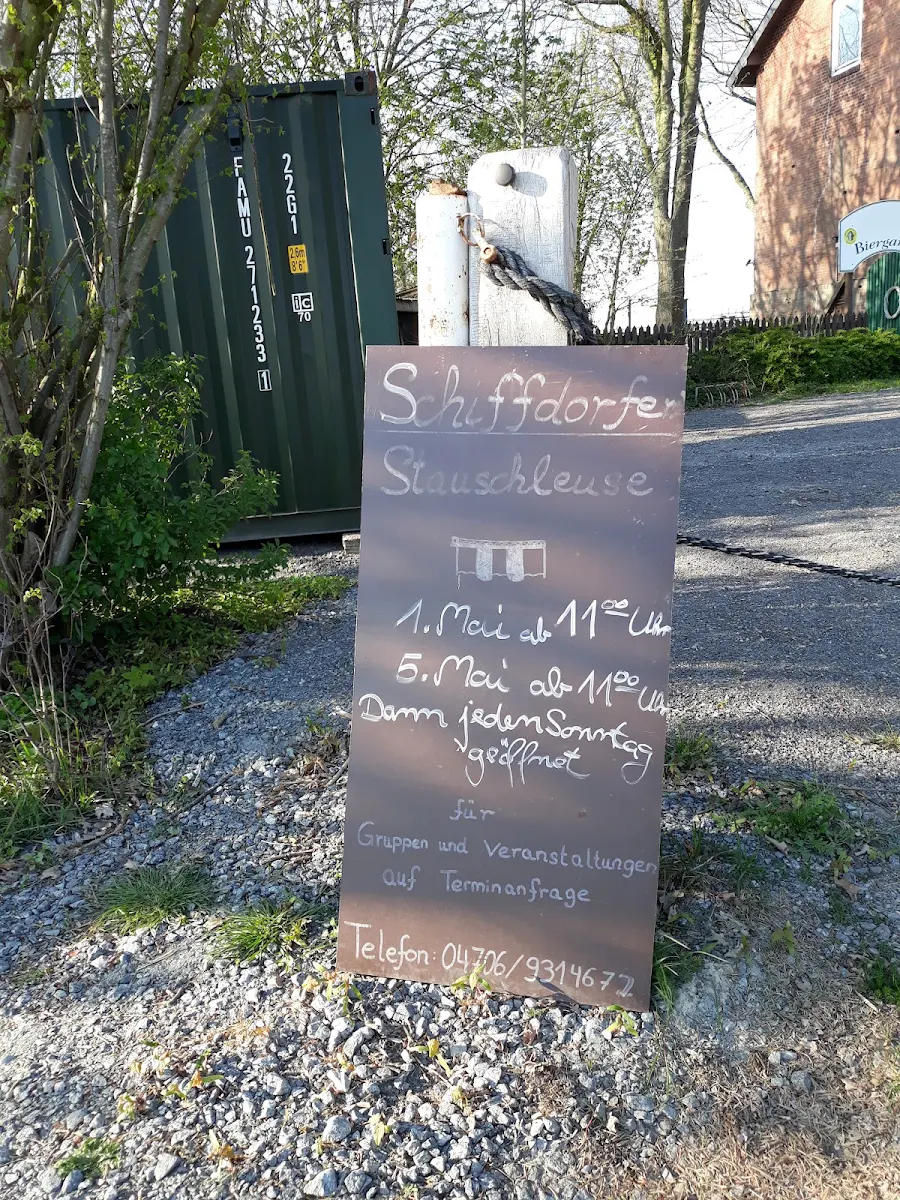 FAMU 271233 1
22G1
2,6m
8'6"
ic
70
Schiffdorfer
Stauschleuse
1. Mai ab 11⁰⁰ Uhr
5. Mai ab 11⁰⁰ Uhr
Dann jeden Sonntag
geöffnet
für
Gruppen und Veranstaltungen
auf Terminanfrage
Telefon: 04706/9314672
Biergar